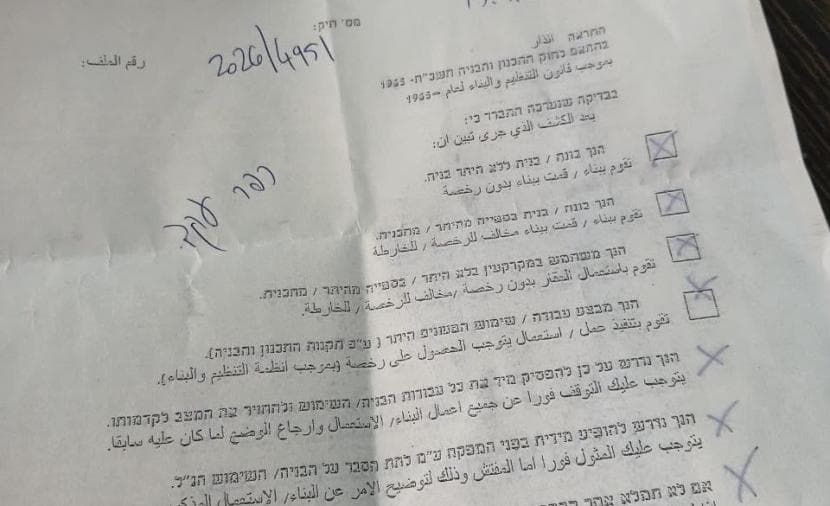 מס' תיק:
رقم الملف:
2026/4951
כפר עקב
התראה انذار
בהתאם לחוק התכנון והבניה תשכ"ה- 1965
بموجب قانون التنظيم والبناء لعام –1965
בבדיקה שנערכה התברר כי:
بعد الكشف الذي جرى تبين ان:
הנך בונה / בנית ללא היתר בניה.
تقوم ببناء / قمت ببناء بدون رخصة
הנך בונה / בנית בסטייה מהיתר / מתכנית.
تقوم ببناء / قمت ببناء مخالف للرخصة / للخارطة
הנך משתמש במקרקעין בלא היתר / בסטייה מהיתר / מתכנית.
تقوم باستعمال العقار بدون رخصة /مخالف للرخصة / للخارطة.
הנך מבצע עבודה / שימוש הטעונים היתר ( ע"פ תקנות התכנון והבניה).
تقوم بتنفيذ عمل / استعمال يتوجب الحصول على رخصة (بموجب انظمة التنظيم والبناء).
הנך נדרש על כן להפסיק מיד את כל עבודות הבניה/ השימוש ולהחזיר את המצב לקדמותו.
يتوجب عليك التوقف فورا عن جميع اعمال البناء/ الاستعمال وارجاع الوضع لما كان عليه سابقا.
הנך נדרש להופיע מידית בפני המפקח ע"מ לתת הסבר על הבניה/ השימוש הנ"ל.
يتوجب عليك المثول فورا اما المفتش وذلك لتوضيح الامر عن البناء/ الاستعمال
אם לא תמלא אחר